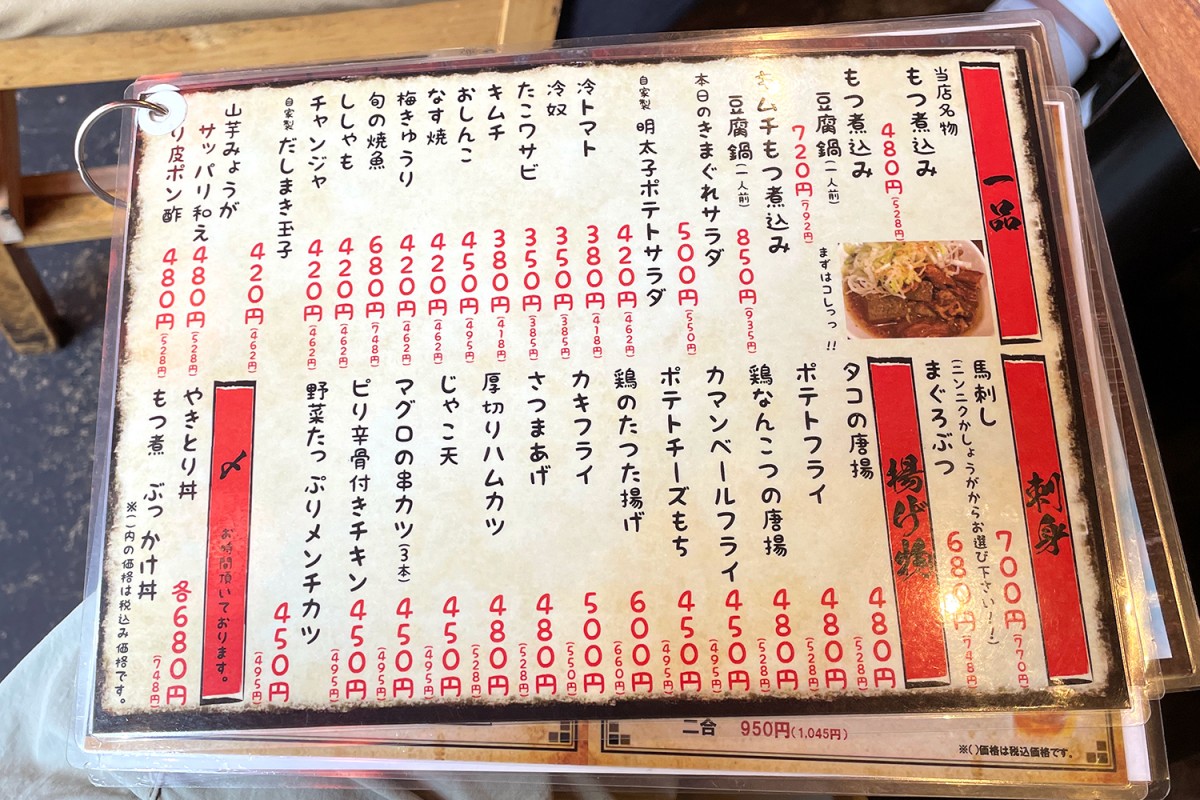 一品
当店名物
もつ煮込み
480円(528円)
もつ煮込み
豆腐鍋(一人前)
720円(792円)
まずはコレっっ!!
キムチもつ煮込み
豆腐鍋(一人前) 850円(935円)
本日のきまぐれサラダ 500円(550円)
自家製 明太子ポテトサラダ 420円(462円)
冷トマト 380円(418円)
冷奴 350円(385円)
たこワサビ 350円(385円)
キムチ 380円(418円)
おしんこ 450円(495円)
なす焼 420円(462円)
梅きゅうり 420円(462円)
旬の焼魚 680円(748円)
ししゃも 420円(462円)
チャンジャ 420円(462円)
自家製 だしまき玉子 420円(462円)
山芋みょうが
サッパリ和え 480円(528円)
り皮ポン酢 480円(528円)
刺身
馬刺し 700円(770円)
(ニンニクかしょうがからお選び下さい〜!)
まぐろぶつ 680円(748円)
揚げ物
タコの唐揚 480円(528円)
ポテトフライ 480円(528円)
鶏なんこつの唐揚 480円(528円)
カマンベールフライ 450円(495円)
ポテトチーズもち 450円(495円)
鶏のたつた揚げ 600円(660円)
カキフライ 500円(550円)
さつまあげ 480円(528円)
厚切りハムカツ 480円(528円)
じゃこ天 450円(495円)
マグロの串カツ(3本) 450円(495円)
ピリ辛骨付きチキン 450円(495円)
野菜たっぷりメンチカツ 450円(495円)
〆 お時間頂いております。
やきとり丼
もつ煮 ぶっかけ丼
各680円(748円)
※()内の価格は税込み価格です。
二合 950円(1,045円)
※()価格は税込価格です。